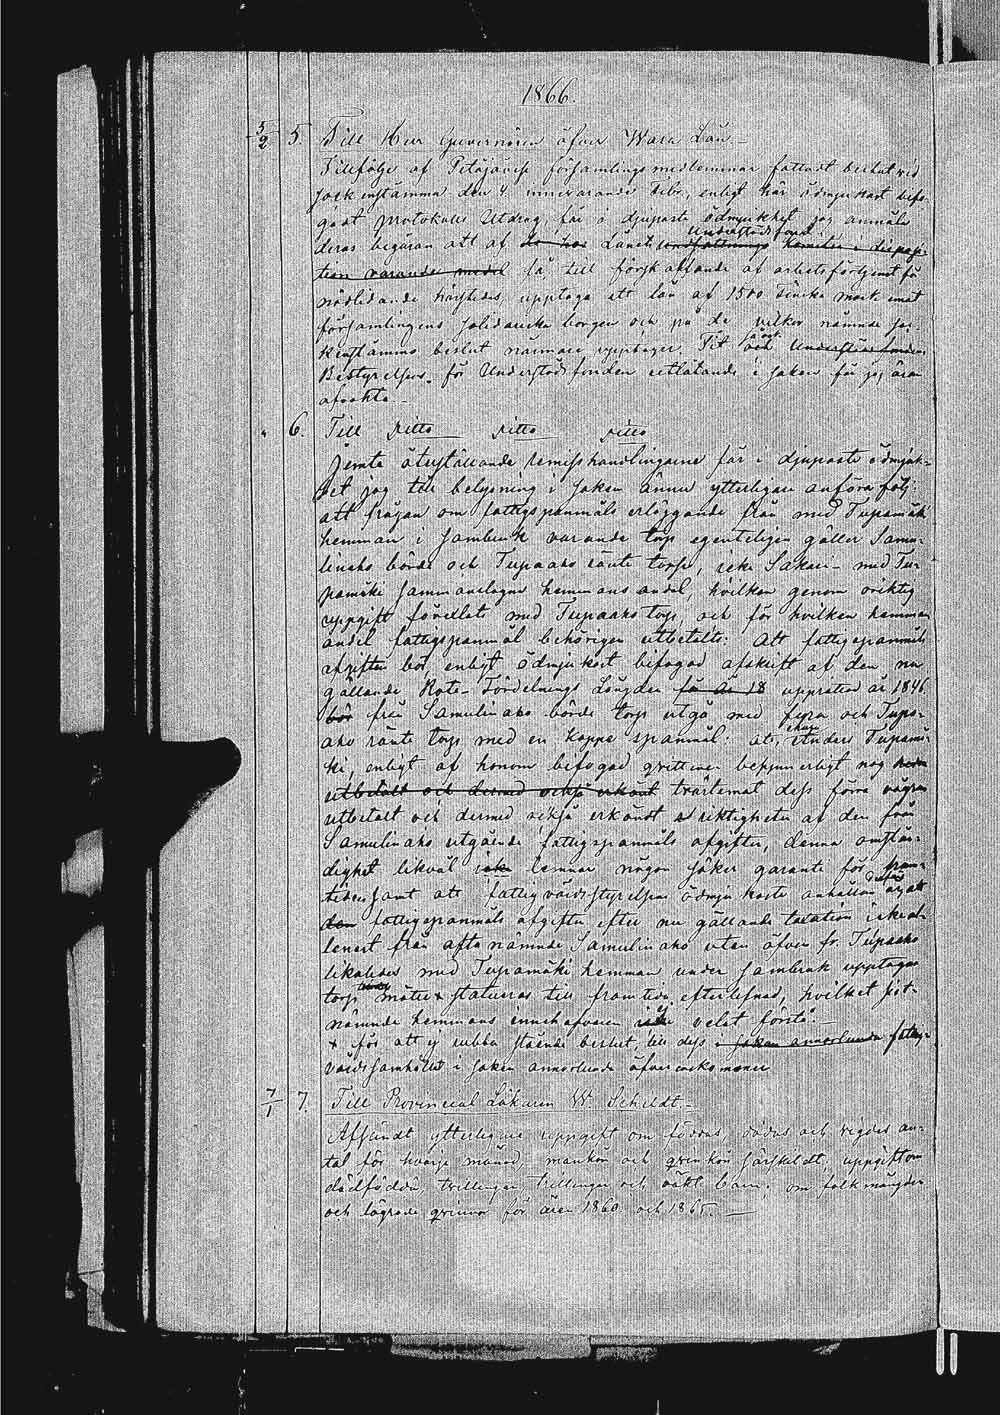 1866.
5/2 5. Till Herr Guvernören öfver Wasa Län.-
Tillfölje af Petäjävesi församlings medlemmar fattadt beslut vid
sockenstämma den 4 innevarande Febr, enligt här ödmjukast bifo-
gadt protokolls Utdrag, får i djupaste ödmjukhet jag anmäla
deras begäran att af de hos Länets understödsfond undsättnings komitén i disposi-
tion varande medel få, till förskaffande af arbetsförtjenst för
nödlidande härstedes, upptaga ett lån af 1500 Finska mark emot
församlingens solidariska borgen och på de vilkor nämnde soc-
kenstämmo beslut närmare upptager. Tit samt och Understödsfondens
Bestyrelsens för Understödsfonden utlåtande i saken får jag äran
afvakta.-
" 6. Till ditto ditto ditto
Jemte återställande remisshandlingarne får i djupaste ödmjuk-
het jag till belysning i saken ännu ytterligare anföra följ:
att frågan om fattigspanmåls erläggande från med Tupamäki
hemman i sambruk varande torp egenteligen gäller Samu-
linaho börds och Tupaaho ränte torp, icke Sakari- med Tu-
pamäki sammanslagne hemmans andel, hvilken genom oriktig
uppgift förvexlats med Tupaaho torp, och för hvilken hemmans
andel fattigspanmål behörigen utbetalts: Att fattigspanmåls
afgiften bör, enligt ödmjukast bifogad afskrift af den nu
gällande Rote-Fördelnings Längden för år 18 upprättad år 1846
bör från Samulinaho börds torp utgå med fyra och Tupa-
aho ränte torp med en kappe spanmål: att, Anders Tupamä-
ki, enligt af honom bifogad qvittence besynnerligt nog hade
utbetalt och dermed också erkänt tvärtemot dess förra vägran
utbetalt och dermed också erkändt riktigheten af den från
Samulinaho utgående fattigspanmåls afgiften, denna omstän-
dighet likväl icke lemnar någon säker garanti för fram-
tiden samt att fattigvårdsstyrelsen ödmjukaste anhållan är att
den fattigspanmåls afgiften efter nu gällande taxation icke al-
lenast från ofta nämnde Samulinaho utan äfven fr. Tupaaho
likaledes med Tupamäki hemman under sambruk upptagne
torp måtte x stadueras till framtida efterlefnad, hvilket sist-
nämnde hemmans innehafvaren icke ej velat förstå.-
x för att ej rubba stående beslut, till dess i saken annorlunda fattig-
vårdssamhället i saken annorlunda öfverenskommer
7/1 7. Till Provincial Läkaren W. Schildt.-
Afsändt ytterligare uppgift om föddas, dödas och vigdas an-
tal för hvarje månad, mankön och qvinkön särskildt, uppgift om
dödfödda, tvillingar, trillingar och oäkta barn; om folkmängden
och lägrade qvinnor för åren 1860 och 1865.-